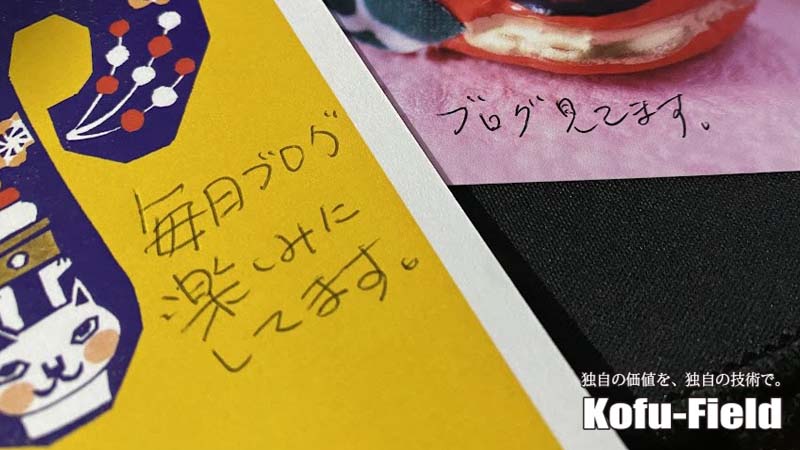 毎日ブログ
楽しみに
してます。
ブログ見てます。
独自の価値を、独自の技術で。
Kofu-Field